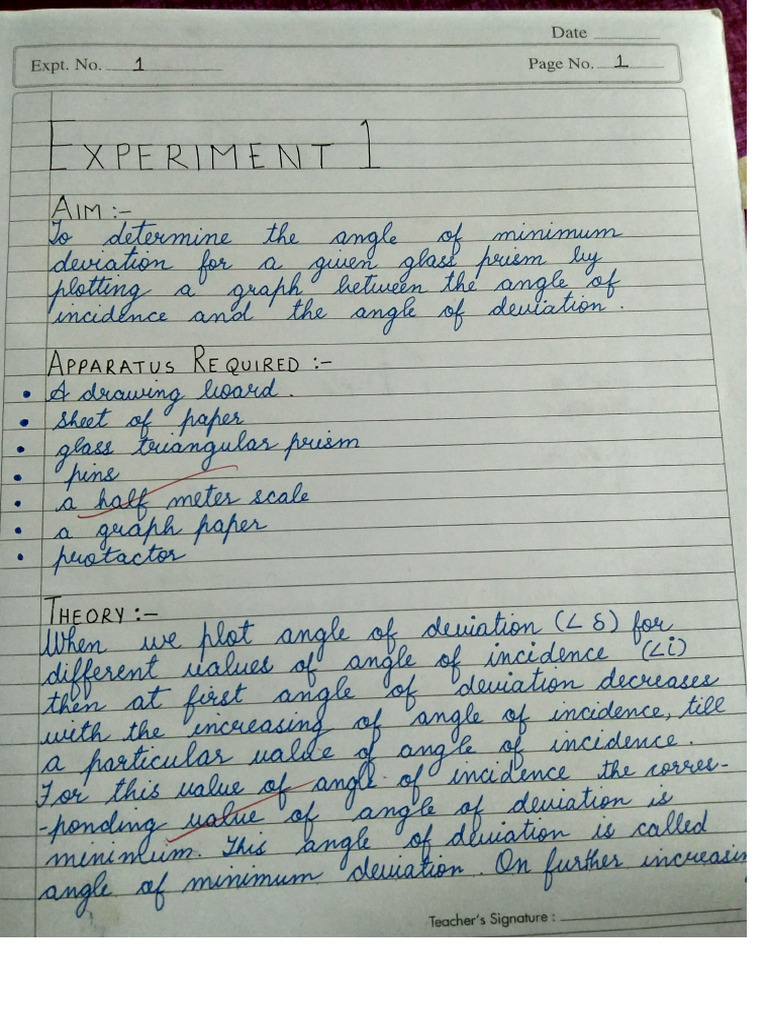 Date
Expt. No. 1
Page No. 1
EXPERIMENT 1
AIM :-
To determine the angle of minimum
deviation for a given glass prism by
plotting a graph between the angle of
incidence and the angle of deviation.
APPARATUS REQUIRED :-
• A drawing board.
• sheet of paper
• glass triangular prism
• pins
• a half meter scale
• a graph paper
• protactor
THEORY :-
When we plot angle of deviation (∠ δ) for
different values of angle of incidence (∠i)
then at first angle of deviation decreases
with the increasing of angle of incidence, till
a particular value of angle of incidence.
For this value of angle of incidence the corres-
-ponding value of angle of deviation is
minimum. This angle of deviation is called
angle of minimum deviation. On further increasin
Teacher's Signature :